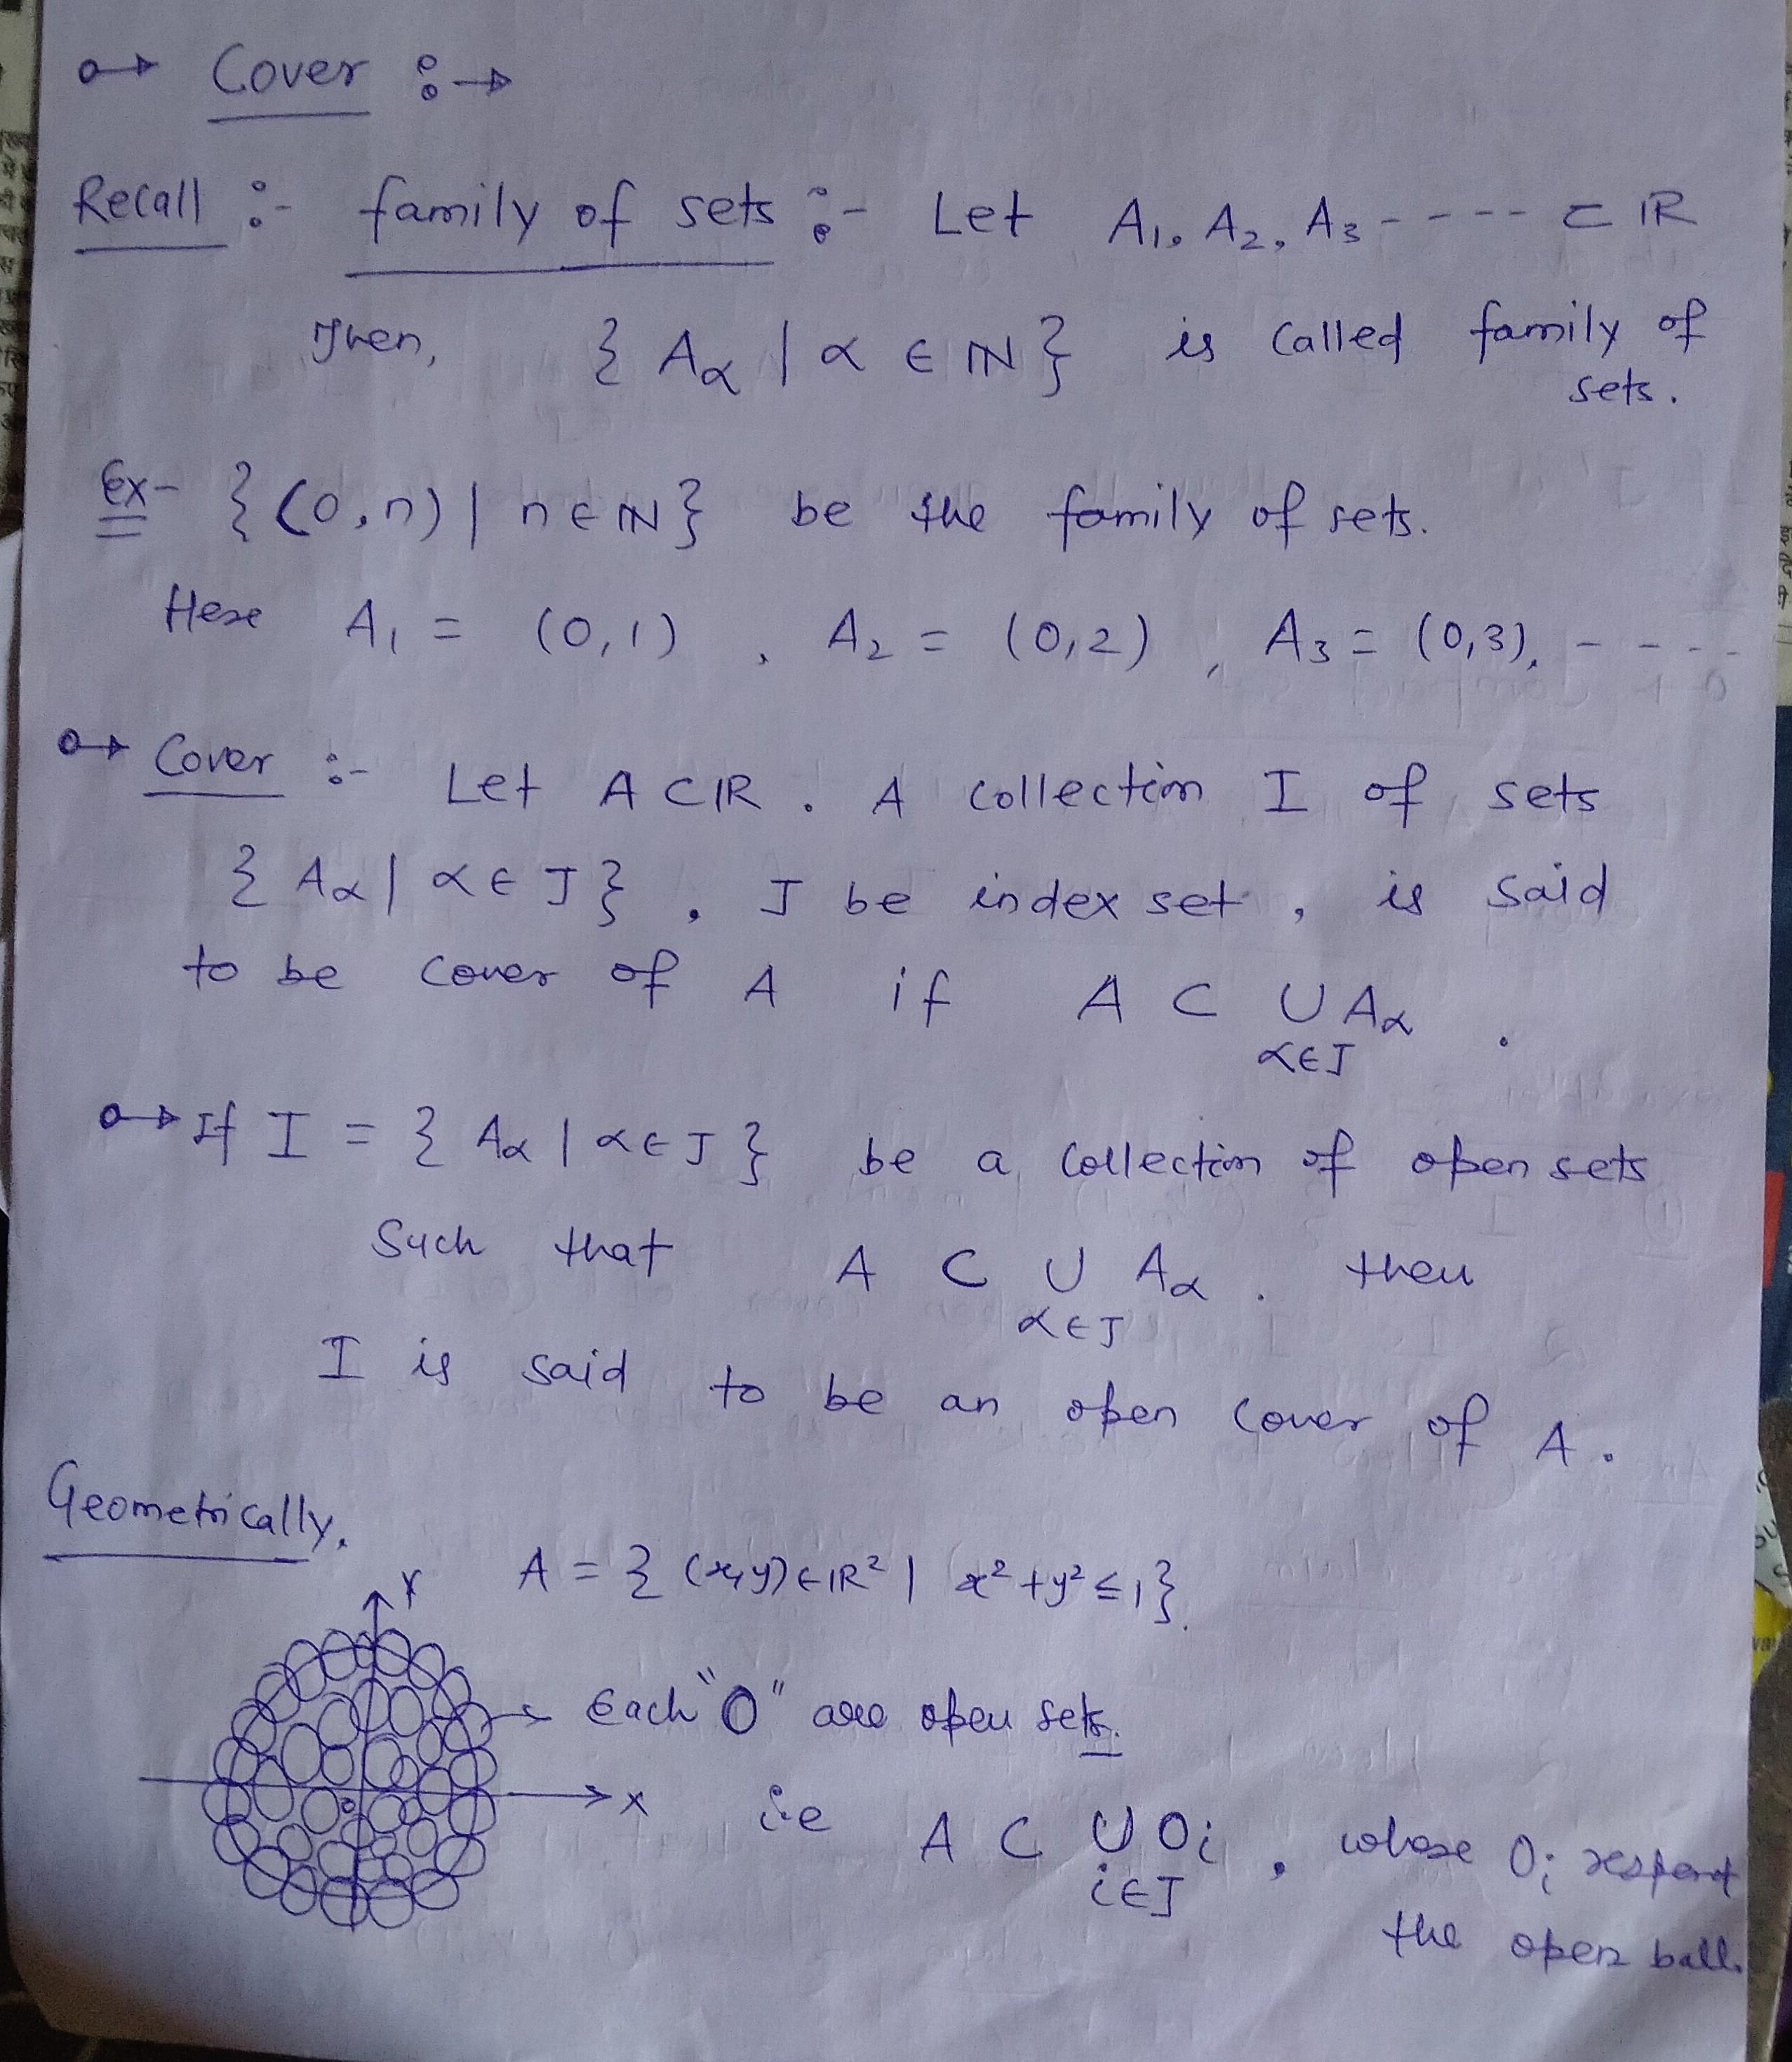 Cover :→
Recall :- family of sets :- Let A₁, A₂, A₃ ---- ⊂ ℝ
Then, { Aα | α ∈ ℕ } is called family of
sets.
Ex- { (0,n) | n ∈ ℕ } be the family of sets.
Here A₁ = (0,1) , A₂ = (0,2) , A₃ = (0,3), ----
Cover :- Let A ⊂ ℝ . A collection I of sets
{ Aα | α ∈ J } , J be index set , is said
to be cover of A if A ⊂ ∪ Aα .
α∈J
If I = { Aα | α ∈ J } be a collection of open sets
Such that A ⊂ ∪ Aα . then
α∈J
I is said to be an open cover of A .
Geometrically,
A = { (x,y) ∈ ℝ² | x²+y² ≤ 1 }.
Y
→ Each "O" are open sets.
X
i.e A ⊂ ∪ Oi , whose Oi
i∈J
the open ball.